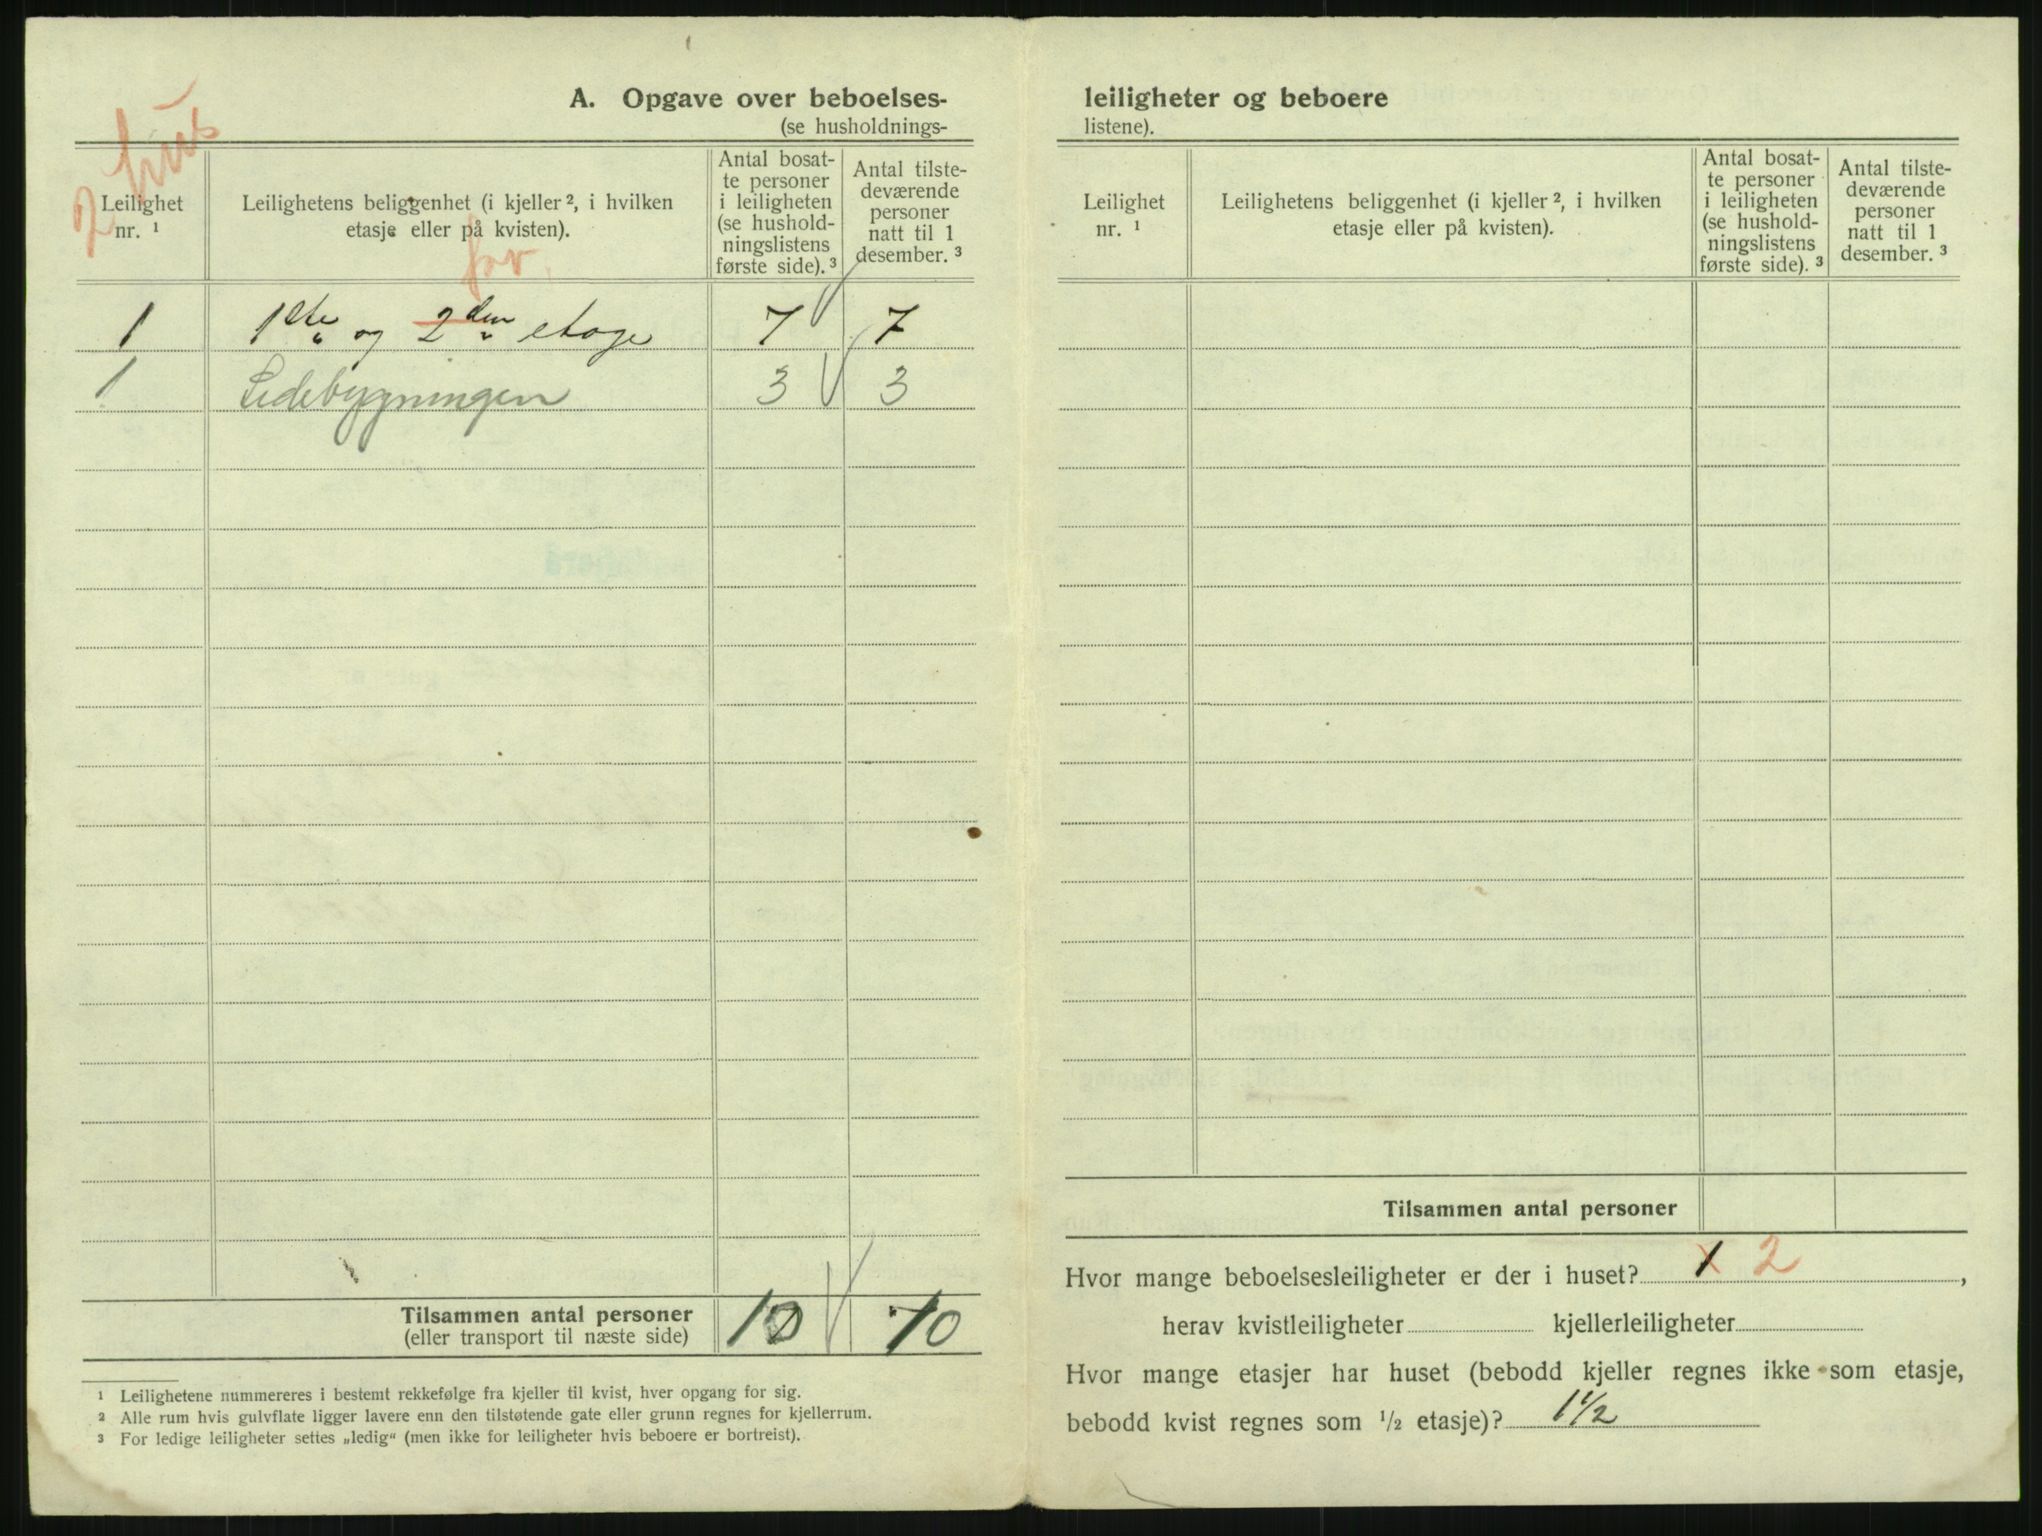 A. Opgave over beboelses-
(se husholdnings-
2 hus
Leilighet
nr. ¹
Leilighetens beliggenhet (i kjeller ², i hvilken
etasje eller på kvisten).
Antal bosat-
te personer
i leiligheten
(se hushold-
ningslistens
første side). ³
Antal tilste-
deværende
personer
natt til 1
desember. ³
1 1ste og 2den etage 7 7
1 Sidebygningen 3 3
Tilsammen antal personer 10 10
(eller transport til næste side)
¹ Leilighetene nummereres i bestemt rekkefølge fra kjeller til kvist, hver opgang for sig.
² Alle rum hvis gulvflate ligger lavere enn den tilstøtende gate eller grunn regnes for kjellerrum.
³ For ledige leiligheter settes „ledig“ (men ikke for leiligheter hvis beboere er bortreist).
leiligheter og beboere
listene).
Leilighet
nr. ¹
Leilighetens beliggenhet (i kjeller ², i hvilken
etasje eller på kvisten).
Antal bosat-
te personer
i leiligheten
(se hushold-
ningslistens
første side). ³
Antal tilste-
deværende
personer
natt til 1
desember. ³
Tilsammen antal personer
Hvor mange beboelsesleiligheter er der i huset? 1 2,
herav kvistleiligheter kjellerleiligheter
Hvor mange etasjer har huset (bebodd kjeller regnes ikke som etasje,
bebodd kvist regnes som ½ etasje)? 1½